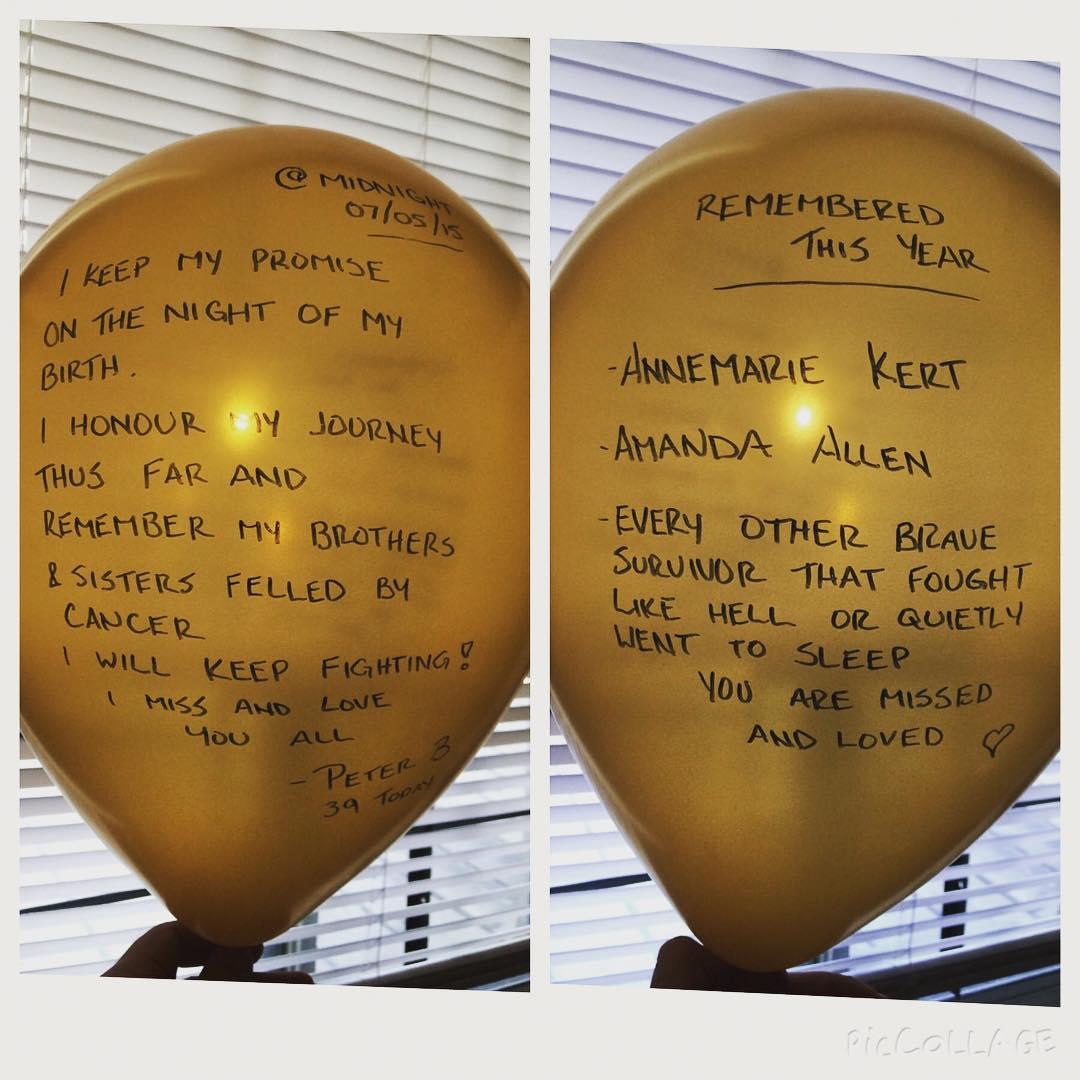 @ MIDNIGHT
07/05/15
I KEEP MY PROMISE
ON THE NIGHT OF MY
BIRTH.
I HONOUR MY JOURNEY
THUS FAR AND
REMEMBER MY BROTHERS
& SISTERS FELLED BY
CANCER
I WILL KEEP FIGHTING!
I MISS AND LOVE
YOU ALL
- PETER B
39 TODAY
REMEMBERED
THIS YEAR
-ANNEMARIE KERT
-AMANDA ALLEN
-EVERY OTHER BRAVE
SURVIVOR THAT FOUGHT
LIKE HELL OR QUIETLY
WENT TO SLEEP
YOU ARE MISSED
AND LOVED ♡
PICCOLLAGE